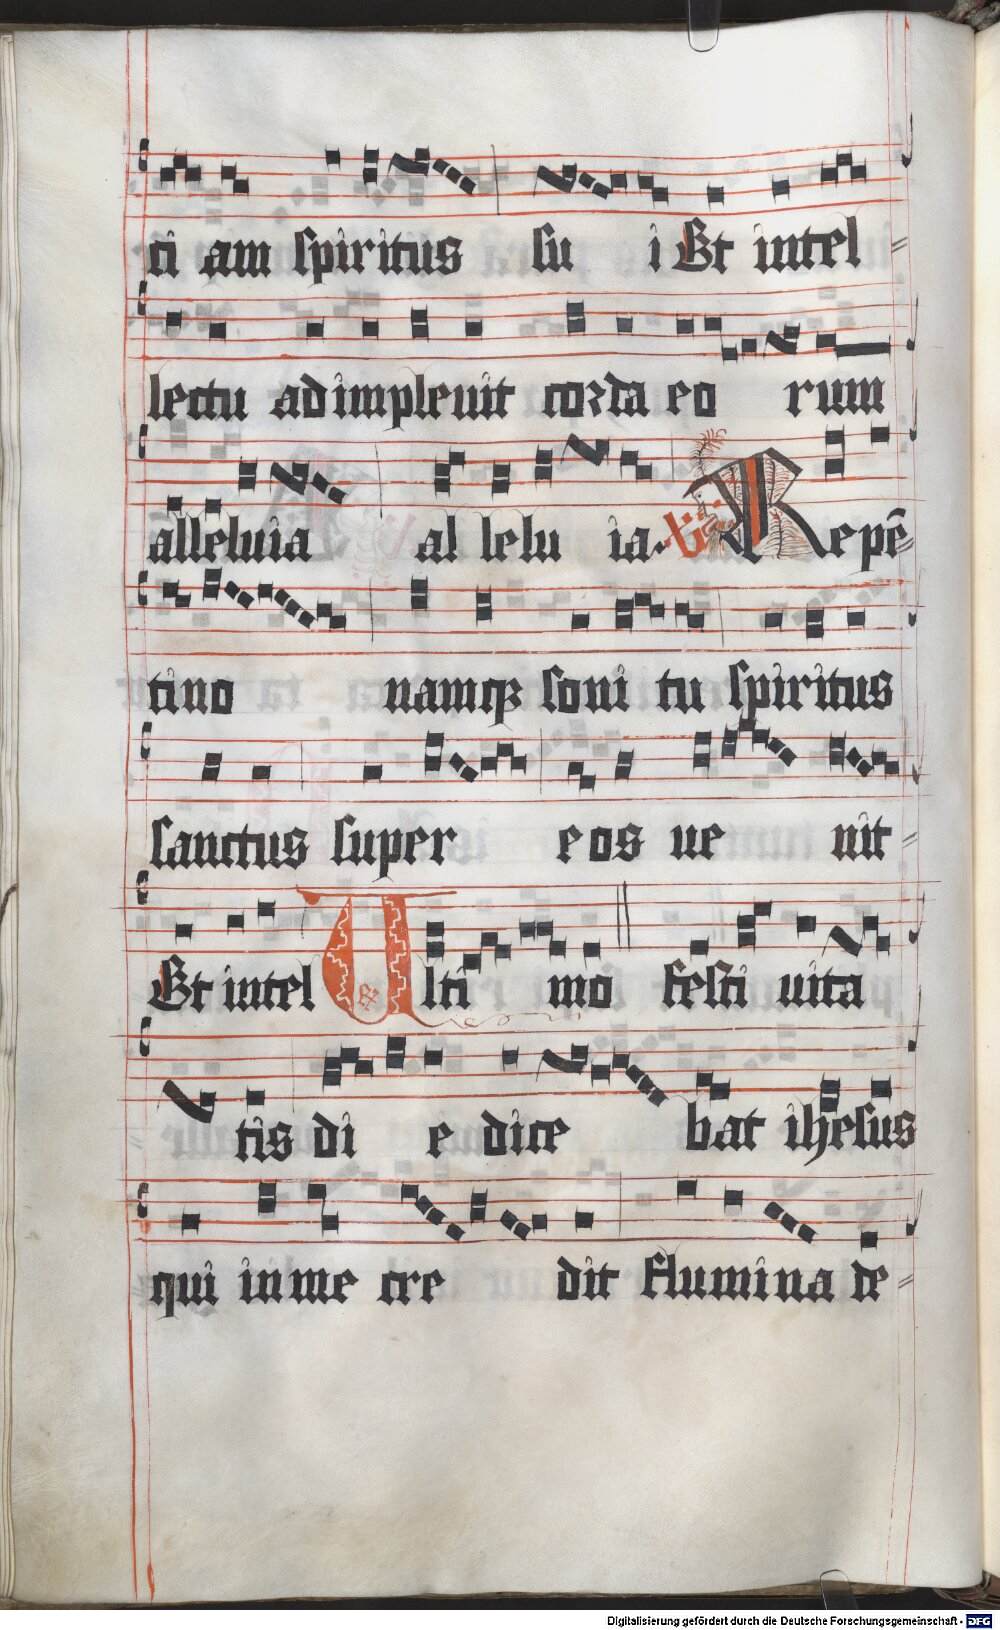 ti am spiritus su i Et intel
lectu adimpleuit corda eo rum
alleluia al lelu ia. V Repē
tino namqꝫ soni tu spiritus
sanctus super eos ue nit
Et intel Ulti mo festi uita
tis di e dice bat ihesus
qui in me cre dit flumina de
Digitalisierung gefördert durch die Deutsche Forschungsgemeinschaft - DFG